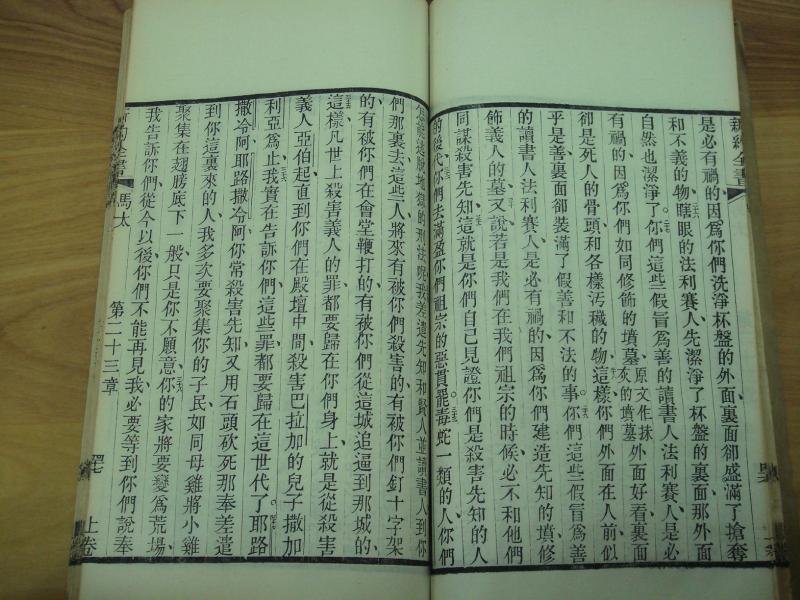 新約全書
是必有禍的、因爲你們洗淨杯盤的外面、裏面卻盛滿了搶奪
和不義的物、瞎眼的法利賽人、先潔淨了杯盤的裏面、那外面
自然也潔淨了。你們這些假冒爲善的讀書人法利賽人、是必
有禍的、因爲你們如同修飾的墳墓、原文作抹灰的墳墓外面好看、裏面
卻是死人的骨頭、和各樣汚穢的物、這樣你們外面在人前似
乎善、裏面卻裝滿了假善和不法的事。你們這些假冒爲善
的讀書人法利賽人、是必有禍的、因爲你們建造先知的墳、修
飾義人的墓、又說、若是我們在我們祖宗的時候、必不和他們
同謀殺害先知、這就是你們自己見證、你們是殺害先知的人
的後代、你們去滿盈你們祖宗的惡貫罷。毒蛇一類的人、你們
怎能逃脫地獄的刑法呢、我差遣先知和賢人並讀書人到你
們那裏去、這些人將來有被你們殺害的、有被你們釘十字架
的、有被你們在會堂鞭打的、有被你們從這城追逼到那城的、
這樣凡世上殺害義人的罪、都要歸在你們身上、就是從殺害
義人亞伯起、直到你們在殿壇中間、殺害巴拉加的兒子撒加
利亞爲止、我實在告訴你們、這些罪都要歸在這世代了。耶路
撒冷阿、耶路撒冷阿、你常殺害先知、又用石頭砍死那奉差遣
到你這裏來的人、我多次要聚集你的子民、如同母雞將小雞
聚集在翅膀底下一般、只是你不願意、你的家將要變爲荒場、
我告訴你們、從今以後、你們不能再見我、必要等到你們說、奉
新約全書 馬太 第二十三章 上卷